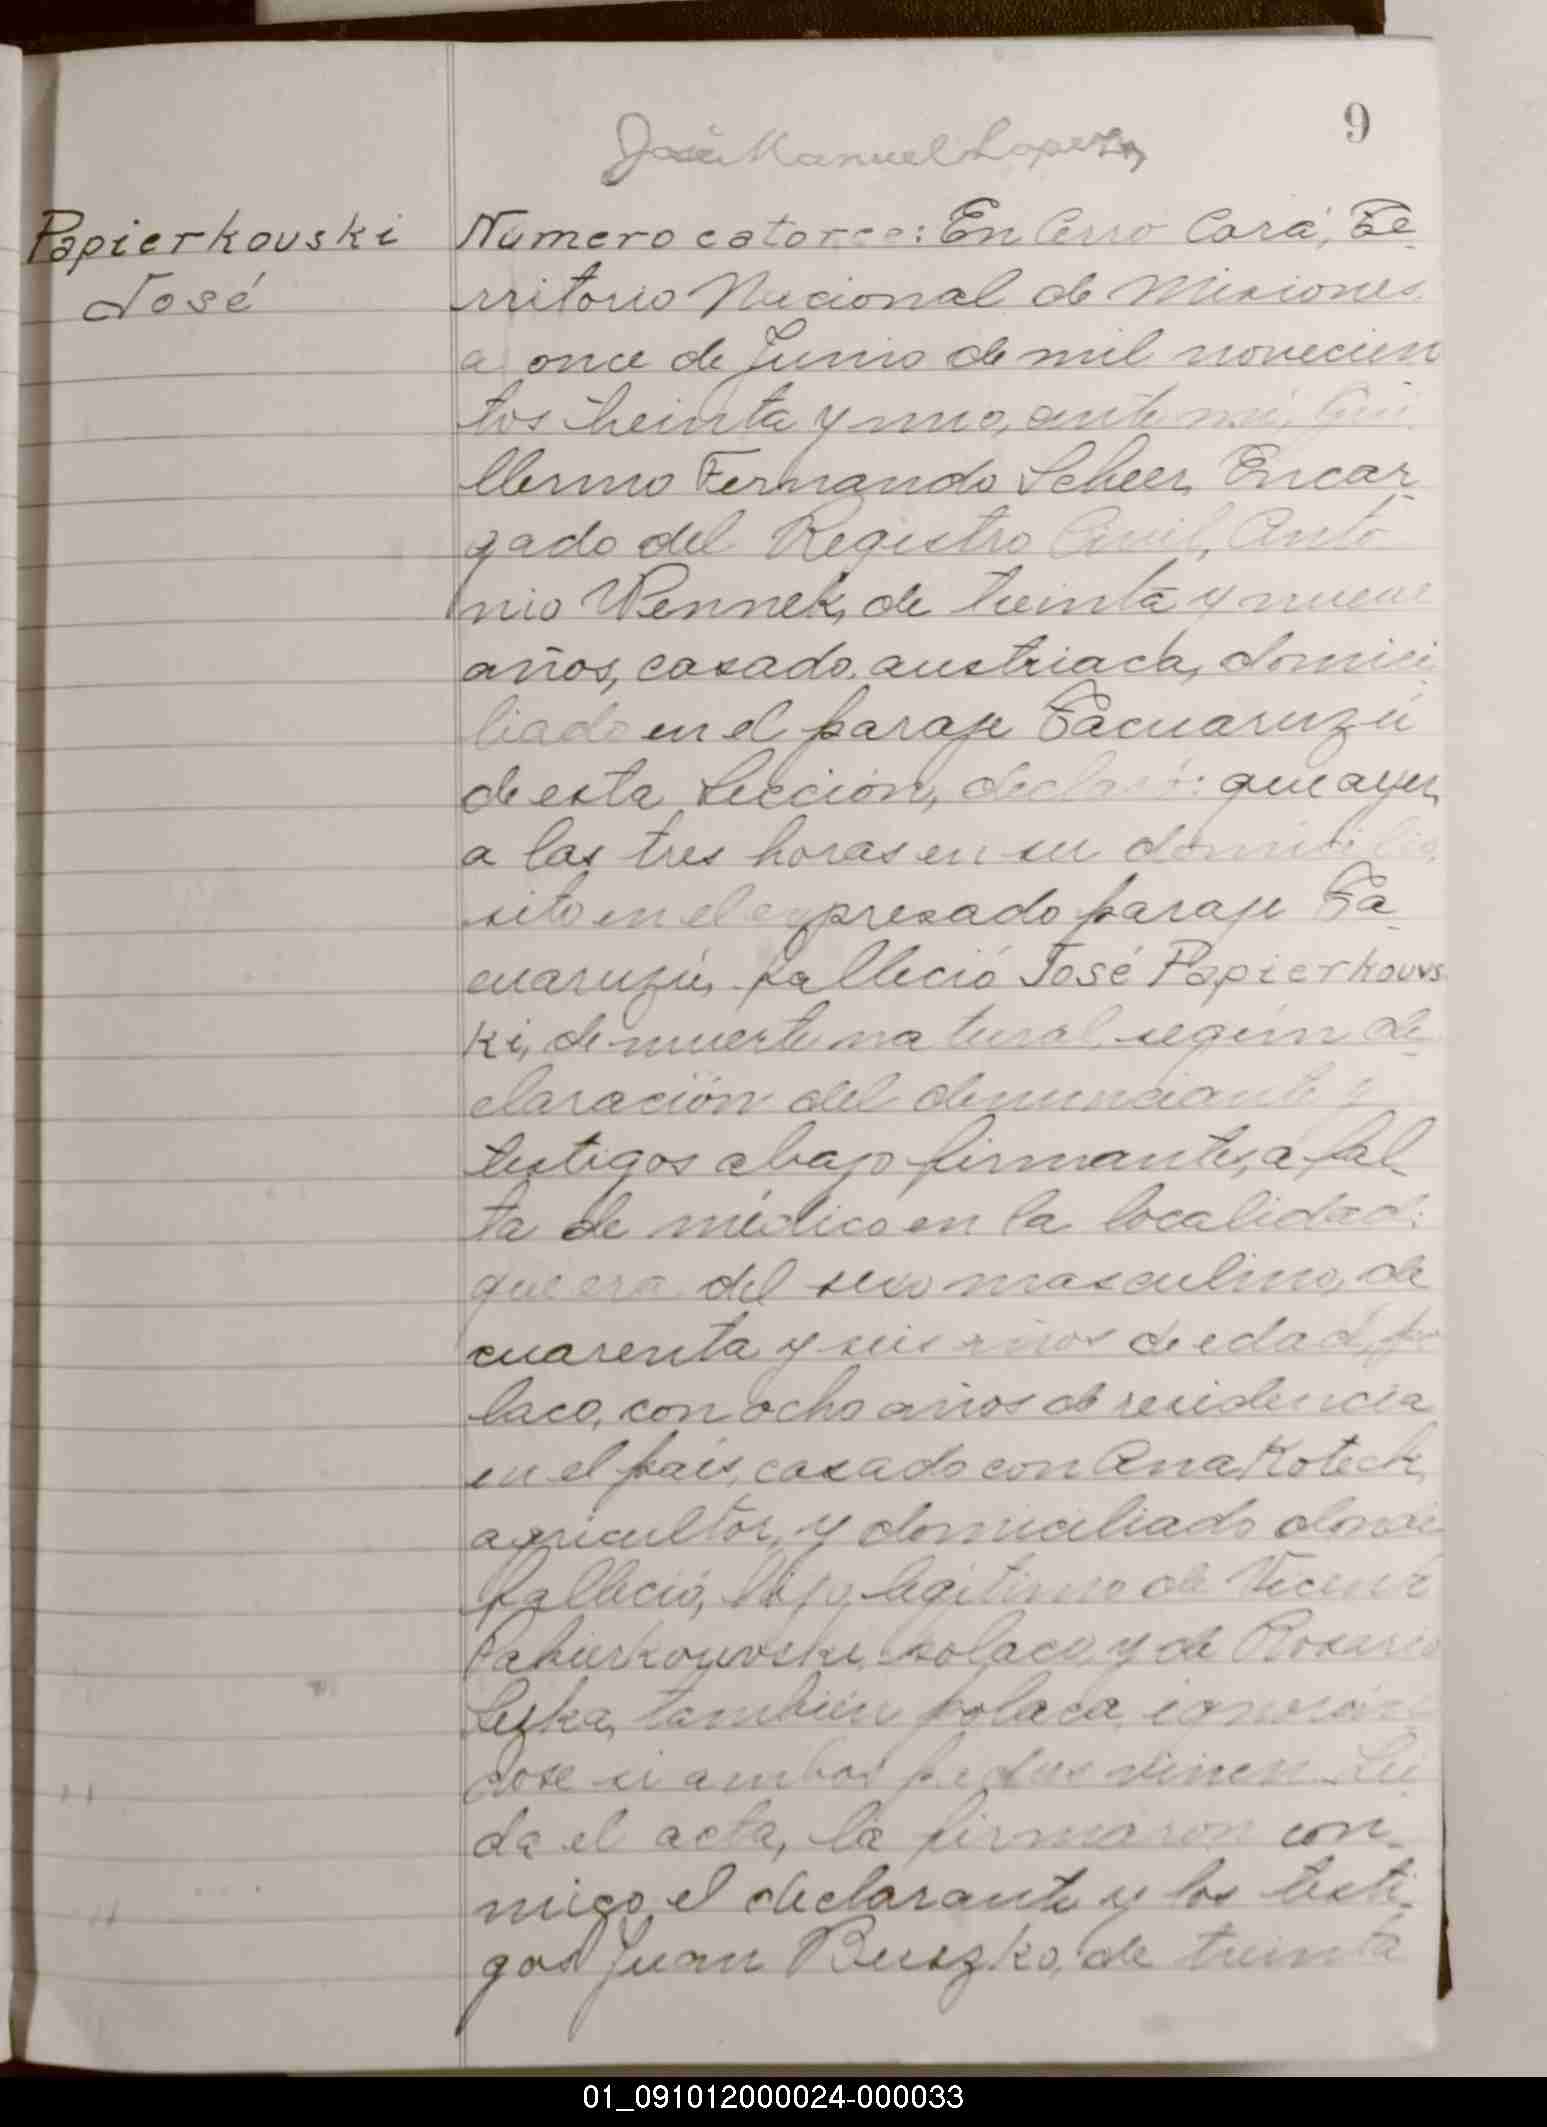 9
José Manuel Lopez
Papierkouski
José
Numero catorce: En Cerro Corá, Te-
rritorio Nacional de Misiones
a once de Junio de mil novecien
tos treinta y uno, ante mí, Gui
llermo Fernando Scheer, Encar-
gado del Registro Civil, Anto
nio Wennek, de treinta y nueve
años, casado, austriaca, domici
liado en el paraje Tacuaruzú
de esta Sección, declaró: que ayer,
a las tres horas en su domicilio
sito en el expresado paraje Ta-
cuaruzú, falleció José Papierkouvs
ki, de muerte natural, según de-
claración del denunciante y
testigos abajo firmantes, a fal-
ta de médico en la localidad:
que era del sexo masculino, de
cuarenta y seis años de edad, po
laco, con ocho años de residencia
en el país, casado con Ana Koteck,
agricultor, y domiciliado donde
falleció, hijo legítimo de Vicente
Papierkouvski, polaco, y de Rosario
también polaca, ignorán
dose si ambos padres viven. Leí
da el acta, la firmaron con-
migo el declarante y los testi-
gos Juan Buszko, de treinta
01_091012000024-000033